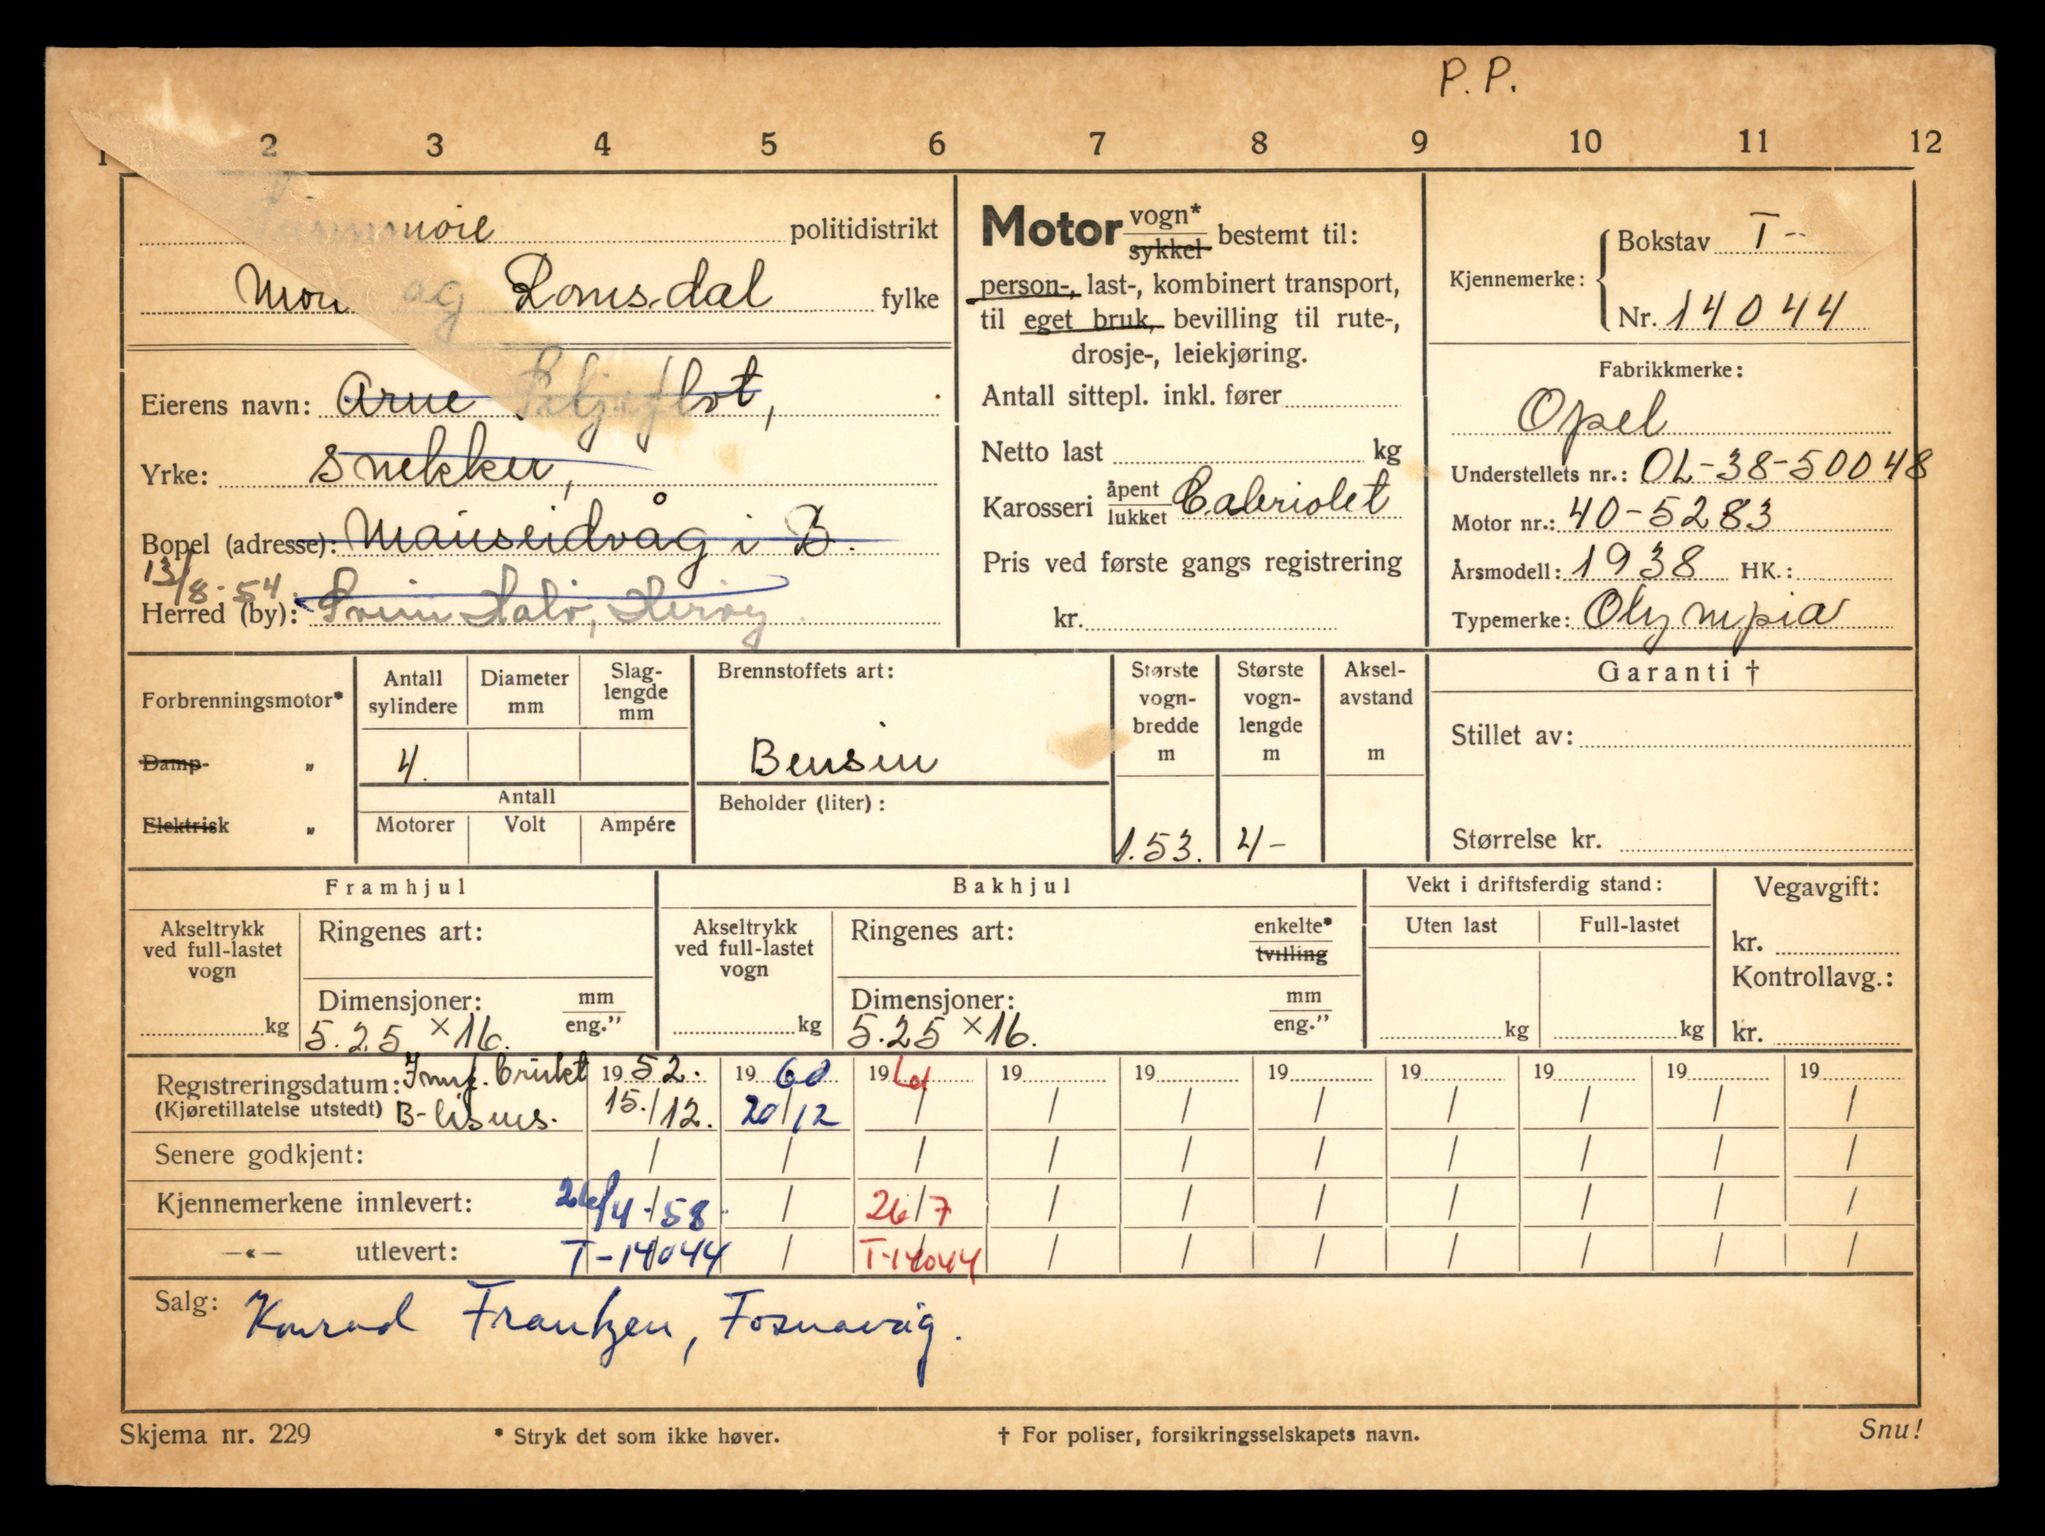 P. P.
1 2 3 4 5 6 7 8 9 10 11 12
politidistrikt
og Romsdal fylke
Eierens navn: Arne
Yrke: snekker,
Bopel (adresse): Mauseidvåg i B.
13/8-54.
Herred (by):
Motor vogn* sykkel bestemt til:
person-, last-, kombinert transport,
til eget bruk, bevilling til rute-,
drosje-, leiekjøring.
Antall sittepl. inkl. fører
Netto last kg
Karosseri åpent lukket Cabriolet
Pris ved første gangs registrering
kr.
Kjennemerke: Bokstav T-
Nr. 14044
Fabrikkmerke:
Opel
Understellets nr.: OL-38-50048
Motor nr.: 40-5283
Årsmodell: 1938 HK.:
Typemerke: Olympia
Forbrenningsmotor*
Damp- "
Elektrisk "
Antall sylindere
4.
Diameter mm
Slag-lengde mm
Antall
Motorer Volt Ampére
Brennstoffets art:
Bensin
Beholder (liter):
Største vogn-bredde m
1.53.
Største vogn-lengde m
4-
Aksel-avstand m
Garanti †
Stillet av:
Størrelse kr.
Framhjul
Akseltrykk ved full-lastet vogn
kg
Ringenes art:
Dimensjoner: mm eng."
5.25 x 16.
Bakhjul
Akseltrykk ved full-lastet vogn
kg
Ringenes art: enkelte* tvilling
Dimensjoner: mm eng."
5.25 x 16.
Vekt i driftsferdig stand:
Uten last Full-lastet
kg kg
Vegavgift:
kr.
Kontrollavg.:
kr.
Registreringsdatum: brukt 1952. 1960 19 19 19 19 19 19 19 19
(Kjøretillatelse utstedt) B-lisens. 15./12. 20/12 / / / / / / / /
Senere godkjent: / / / / / / / / / /
Kjennemerkene innlevert: 26/4.58. / 26/7 / / / / / / /
—«— utlevert: T-14044 / T-14044 / / / / / / /
Salg: Konrad Frantzen, Fosnavåg.
Skjema nr. 229
* Stryk det som ikke høver.
† For poliser, forsikringsselskapets navn.
Snu!